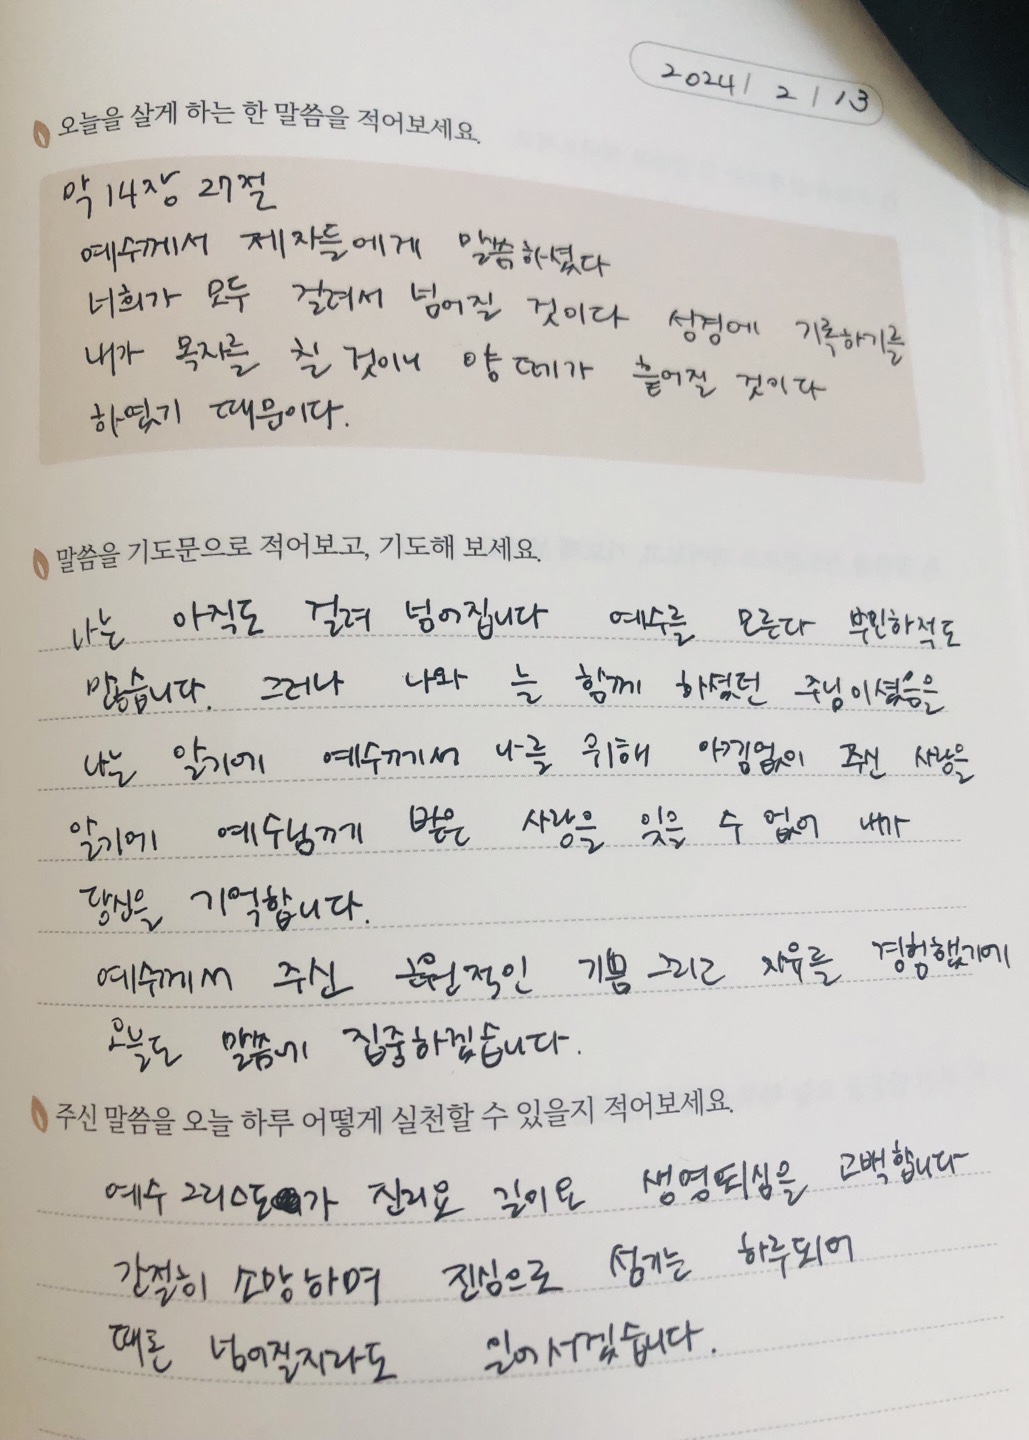 2024 / 2 / 13
오늘을 살게 하는 한 말씀을 적어보세요.
막 14장 27절
예수께서 제자들에게 말씀하셨다
너희가 모두 걸려서 넘어질 것이다 성경에 기록하기를
내가 목자를 칠 것이니 양 떼가 흩어질 것이다
하였기 때문이다.
말씀을 기도문으로 적어보고, 기도해 보세요.
나는 아직도 걸려 넘어집니다 예수를 모른다 부인하적도
많습니다. 그러나 나와 늘 함께 하셨던 주님이셨음을
나는 알기에 예수께서 나를 위해 아낌없이 주신 사랑을
알기에 예수님께 받은 사랑을 잊을 수 없어 내가
당신을 기억합니다.
예수께서 주신 근원적인 기쁨 그리고 자유를 경험했기에
오늘도 말씀에 집중하겠습니다.
주신 말씀을 오늘 하루 어떻게 실천할 수 있을지 적어보세요.
예수 그리스도가 진리요 길이요 생명되심을 고백합니다
간절히 소망하며 진심으로 섬기는 하루되어
때론 넘어질지라도 일어서겠습니다.